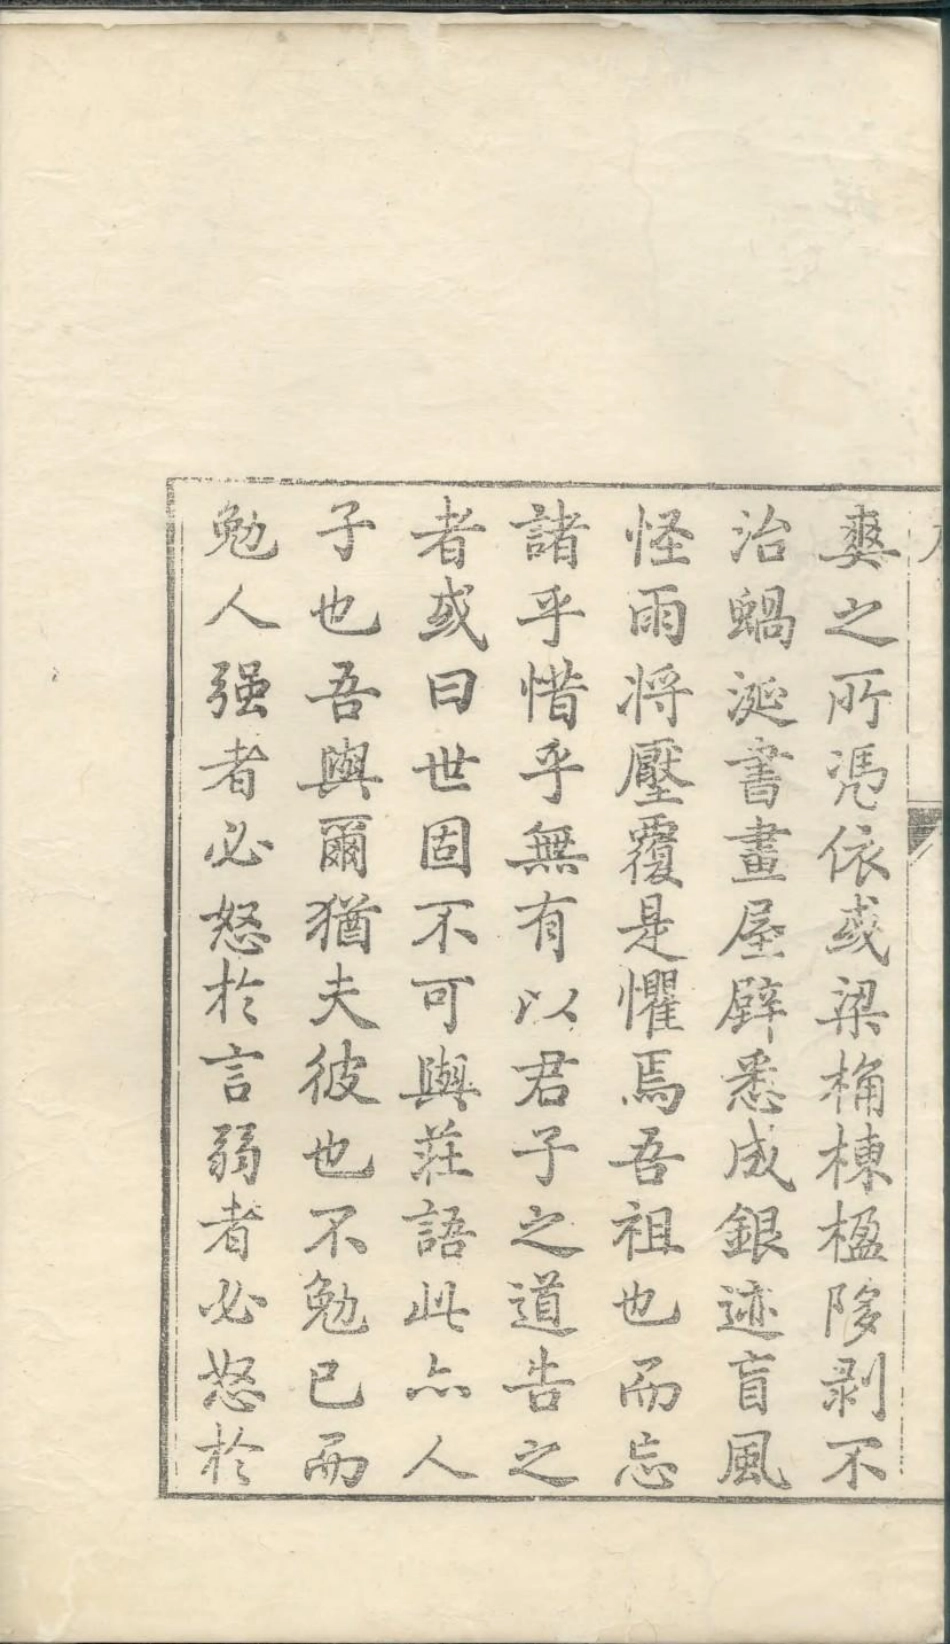 爽之所憑依或梁桷棟楹陊剥不
治蝸涎書畫屋辟悉成銀迹盲風
怪雨将壓覆是懼焉吾祖也而忘
諸乎惜乎無有以君子之道告之
者或曰世固不可與莊語此亦人
子也吾與爾猶夫彼也不勉已而
勉人强者必怒於言弱者必怒於